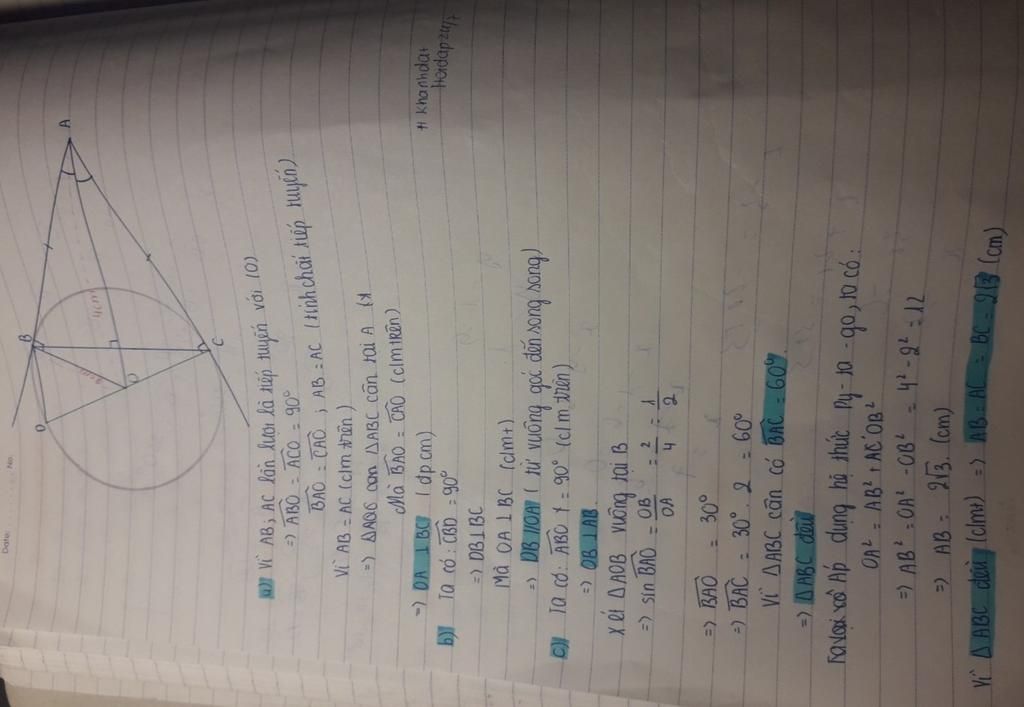 Date: No.
A
B
C
O
D
2cm
4cm
a) Vì AB; AC lần lượt là tiếp tuyến với (O)
=> ABO = ACO = 90°
BAO = CAO ; AB = AC (tính chất tiếp tuyến)
Vì AB = AC (clm trên)
=> ΔABC cân tại A
Mà BAO = CAO (clm trên)
=> OA ⊥ BC (dpcm)
# khanhdat
Hoidap247
b) Ta có: CBD = 90°
=> DB ⊥ BC
Mà OA ⊥ BC (clmt)
=> DB // OA (từ vuông góc đến song song)
c) Ta có: ABO = 90° (clm trên)
=> OB ⊥ AB
Xét ΔAOB vuông tại B
=> sin BAO = OB/OA = 2/4 = 1/2
=> BAO = 30°
=> BAC = 30°. 2 = 60°
Vì ΔABC cân có BAC = 60°
=> ΔABC đều
Áp dụng hệ thức Py-ta-go, ta có:
OA² = AB² + OB²
=> AB² = OA² - OB² = 4² - 2² = 12
=> AB = 2√3 (cm)
Vì ΔABC đều (clmt) => AB = AC = BC = 2√3 (cm)